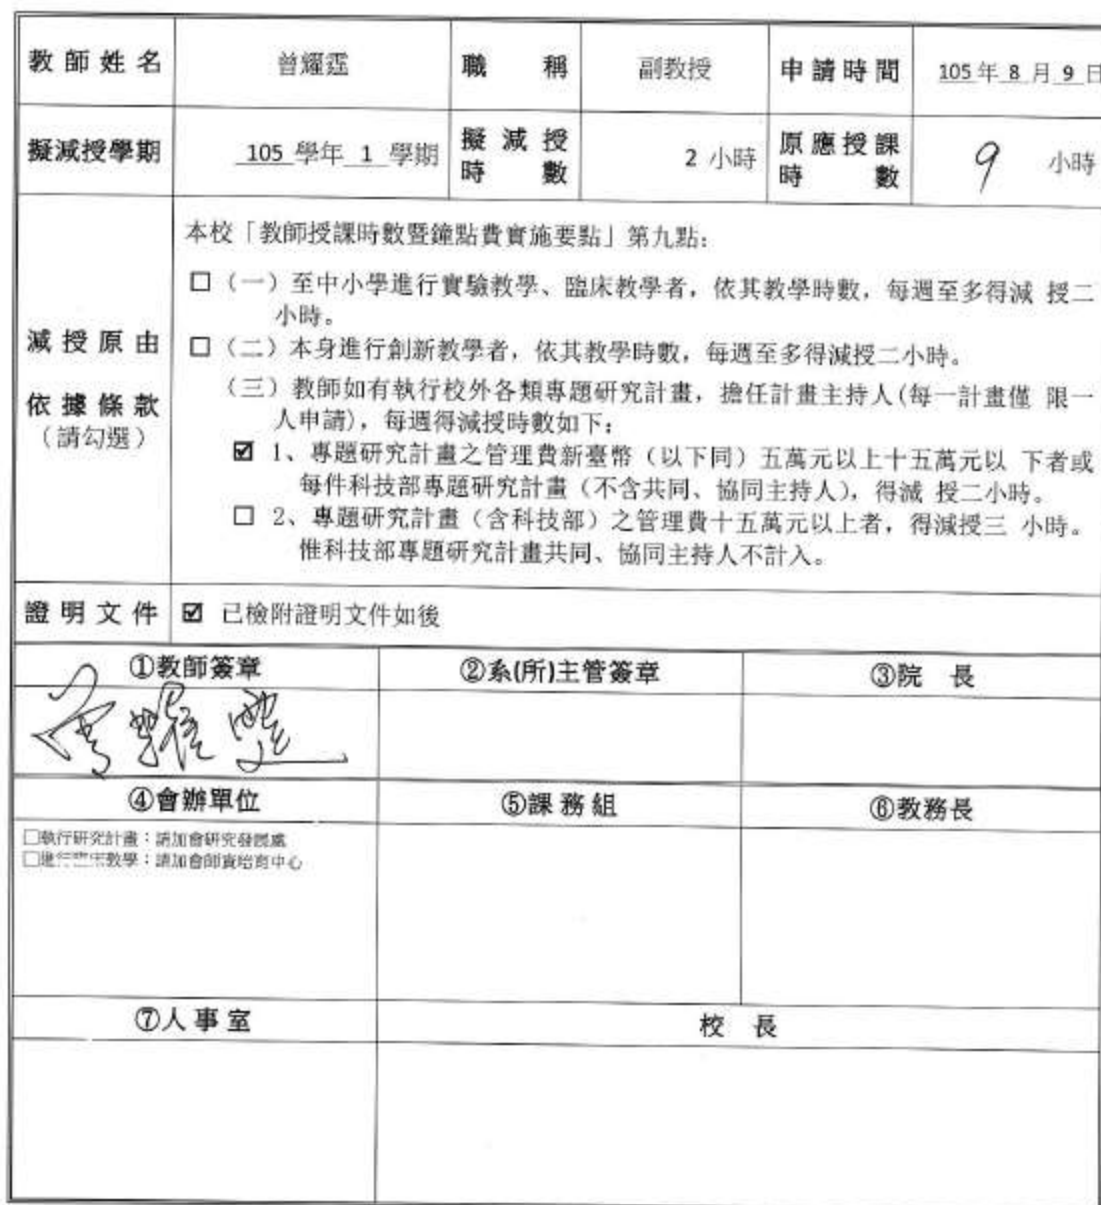 教師姓名 曾耀霆 職 稱 副教授 申請時間 105 年 8 月 9 日
擬減授學期 105 學年 1 學期 擬減授時數 2 小時 原應授課時數 9 小時
減授原由
依據條款
（請勾選）
本校「教師授課時數暨鐘點費實施要點」第九點：
☐（一）至中小學進行實驗教學、臨床教學者，依其教學時數，每週至多得減 授二
小時。
☐（二）本身進行創新教學者，依其教學時數，每週至多得減授二小時。
（三）教師如有執行校外各類專題研究計畫，擔任計畫主持人(每一計畫僅 限一
人申請)，每週得減授時數如下：
☑ 1、專題研究計畫之管理費新臺幣（以下同）五萬元以上十五萬元以 下者或
每件科技部專題研究計畫（不含共同、協同主持人），得減 授二小時。
☐ 2、專題研究計畫（含科技部）之管理費十五萬元以上者，得減授三 小時。
惟科技部專題研究計畫共同、協同主持人不計入。
證明文件 ☑ 已檢附證明文件如後
①教師簽章 ②系(所)主管簽章 ③院 長
曾耀霆
④會辦單位 ⑤課務組 ⑥教務長
☐執行研究計畫：請加會研究發展處
☐進行臨床教學：請加會師資培育中心
⑦人事室 校 長